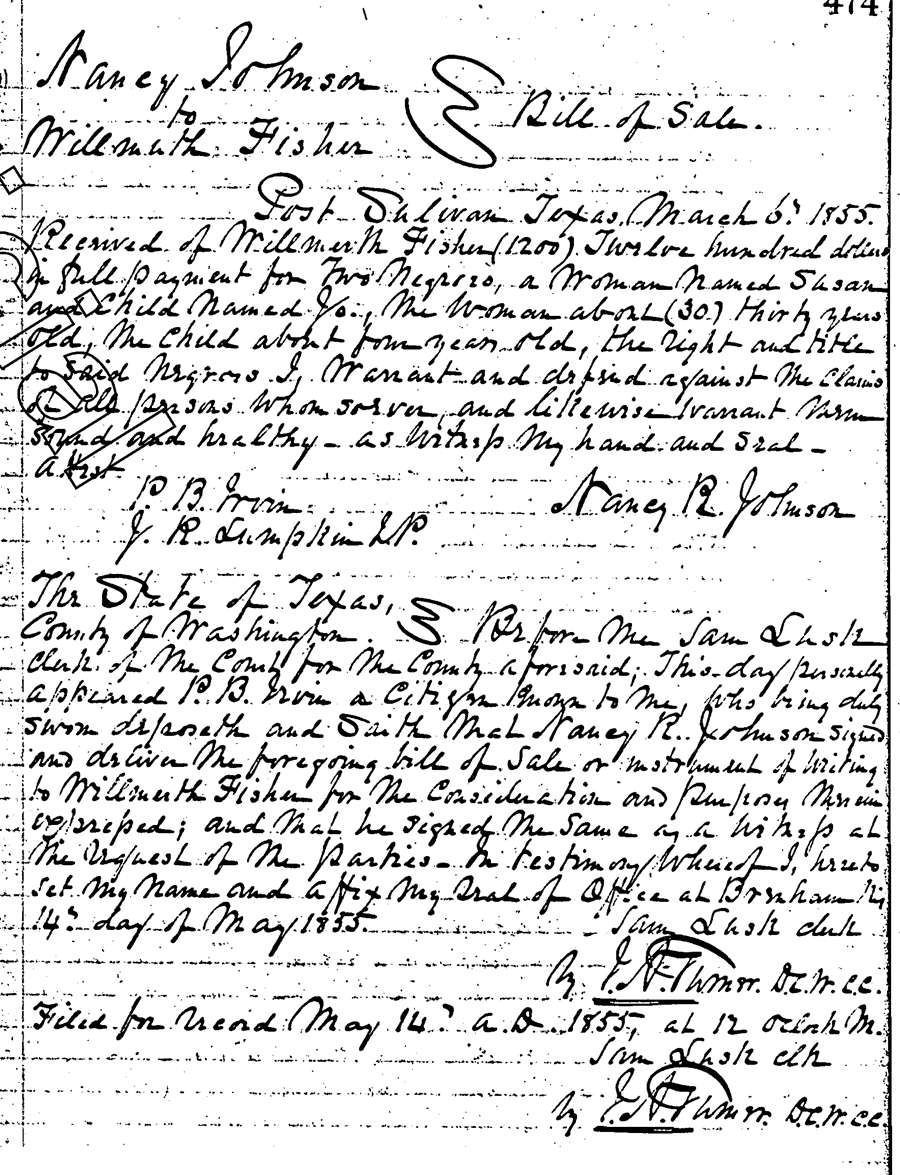 474
Nancy Johnson
to
Willmuth Fisher
Bill of Sale.
Post Sulivan Texas, March 6th 1855.
Received of Willmuth Fisher (1200) Twelve hundred dollars
in full payment for Two Negroes, a Woman Named Susan
and Child Named Jo., the Woman about (30) thirty years
old, the Child about four years old, the right and title
to Said Negroes I, Warrant and defend against the Claims
of all persons Whom soever, and likewise warrant them
sound and healthy - as Witness My hand and seal -
Attest
P. B. Irvin
Nancy R. Johnson
J. R. Lumpkin J.P.
The State of Texas,
County of Washington.
Before Me Sam Lusk
clerk of the County for the County aforesaid; This day personally
appeared P. B. Irvin a Citizen Known to Me, who being duly
sworn deposeth and Saith that Nancy R. Johnson signed
and deliver the foregoing bill of Sale or instrument of Writing
to Willmuth Fisher for the Consideration and purposes therein
expressed; and that he signed the Same as a Witness at
the request of the parties - In testimony Whereof I, hereto
set My Name and affix My Seal of Office at Brenham this
14th day of May 1855.
Sam Lusk clerk
by D.C.W.C.C.
Filed for record May 14th A.D. 1855, at 12 Oclock M.
Sam Lusk clk
by D.C.W.C.C.